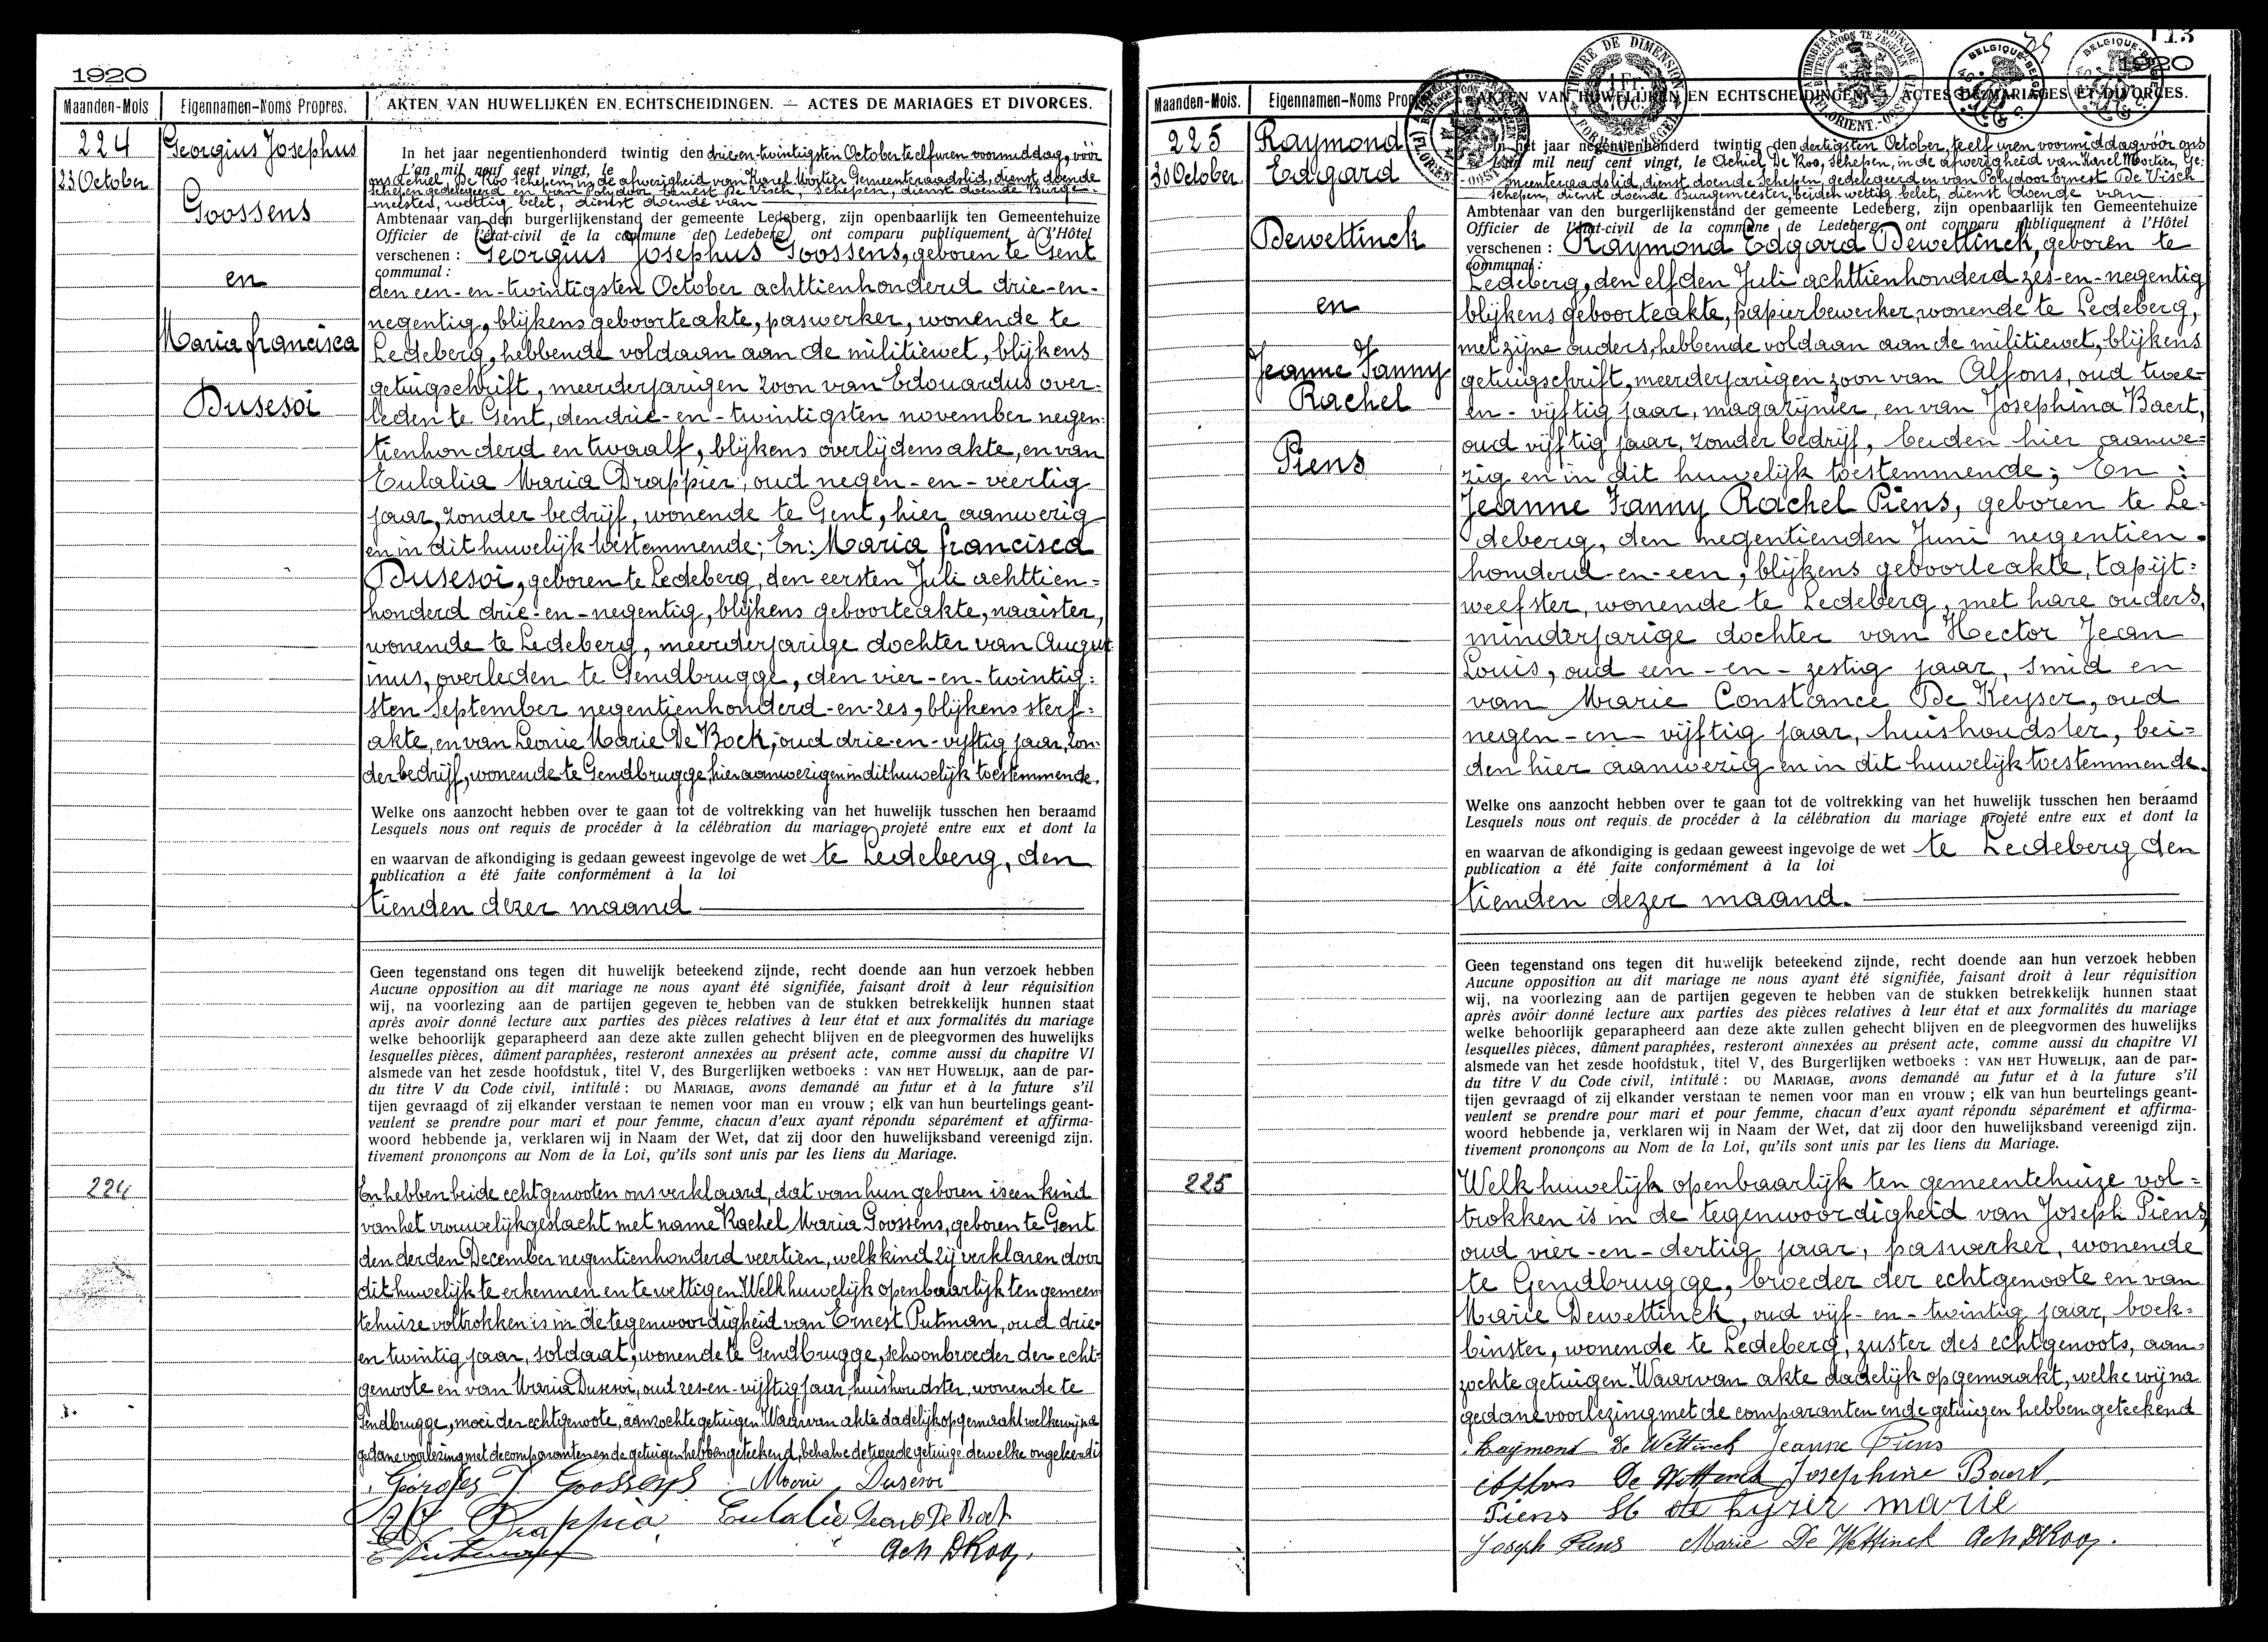 1920
Maanden-Mois
Eigennamen-Noms Propres.
AKTEN VAN HUWELIJKEN EN ECHTSCHEIDINGEN. — ACTES DE MARIAGES ET DIVORCES.
224
23 October
Georgius Josephus
Goossens
en
Maria francisca
Dusesoi
In het jaar negentienhonderd twintig den drie-en-twintigsten October te elf uren voormiddag, vóór
L'an mil neuf cent vingt, le
ons Achiel De Koo schepen, in de afwezigheid van Karel Mortier Gemeenteraadslid, dienst doende
schepen gedelegeerd en van Polydoor Ernest De Visch, schepen, dienst doende Burge-
meester, wettig belet, dienst doende van
Ambtenaar van den burgerlijkenstand der gemeente Ledeberg, zijn openbaarlijk ten Gemeentehuize
Officier de l'état-civil de la commune de Ledeberg ont comparu publiquement à l'Hôtel
verschenen : Georgius Josephus Goossens, geboren te Gent
communal :
den een-en-twintigsten October achttienhonderd drie-en-
negentig, blijkens geboorteakte, paswerker, wonende te
Ledeberg, hebbende voldaan aan de militiewet, blijkens
getuigschrift, meerderjarigen zoon van Edouardus over-
leden te Gent, den drie-en-twintigsten november negen-
tienhonderd en twaalf, blijkens overlijdensakte, en van
Eulalia Maria Drappier, oud negen-en-veertig
jaar, zonder bedrijf, wonende te Gent, hier aanwezig
en in dit huwelijk toestemmende; En: Maria francisca
Dusesoi, geboren te Ledeberg, den eersten Juli achttien-
honderd drie-en-negentig, blijkens geboorteakte, naaister,
wonende te Ledeberg, meerderjarige dochter van August
inus, overleden te Gendbrugge, den vier-en-twintig-
sten September negentienhonderd-en-zes, blijkens sterf-
akte, en van Leonie Marie De Bock, oud drie-en-vijftig jaar, zon-
der bedrijf, wonende te Gendbrugge, hier aanwezig en in dit huwelijk toestemmende.
Welke ons aanzocht hebben over te gaan tot de voltrekking van het huwelijk tusschen hen beraamd
Lesquels nous ont requis de procéder à la célébration du mariage projeté entre eux et dont la
en waarvan de afkondiging is gedaan geweest ingevolge de wet te Ledeberg, den
publication a été faite conformément à la loi
tienden dezer maand
Geen tegenstand ons tegen dit huwelijk beteekend zijnde, recht doende aan hun verzoek hebben
Aucune opposition au dit mariage ne nous ayant été signifiée, faisant droit à leur réquisition
wij, na voorlezing aan de partijen gegeven te hebben van de stukken betrekkelijk hunnen staat
après avoir donné lecture aux parties des pièces relatives à leur état et aux formalités du mariage
welke behoorlijk geparapheerd aan deze akte zullen gehecht blijven en de pleegvormen des huwelijks
lesquelles pièces, dûment paraphées, resteront annexées au présent acte, comme aussi du chapitre VI
alsmede van het zesde hoofdstuk, titel V, des Burgerlijken wetboeks : VAN HET HUWELIJK, aan de par-
du titre V du Code civil, intitulé : DU MARIAGE, avons demandé au futur et à la future s'il
tijen gevraagd of zij elkander verstaan te nemen voor man en vrouw ; elk van hun beurtelings geant-
veulent se prendre pour mari et pour femme, chacun d'eux ayant répondu séparément et affirma-
woord hebbende ja, verklaren wij in Naam der Wet, dat zij door den huwelijksband vereenigd zijn.
tivement prononçons au Nom de la Loi, qu'ils sont unis par les liens du Mariage.
224
En hebben beide echtgenooten ons verklaard, dat van hun geboren is een kind
van het vrouwelijk geslacht met name Rachel Maria Goossens, geboren te Gent
den derden December negentienhonderd veertien, welk kind zij verklaren door
dit huwelijk te erkennen en te wettigen. Welk huwelijk openbaarlijk ten gemeen-
tehuize voltrokken is in de tegenwoordigheid van Ernest Putman, oud drie-
en twintig jaar, soldaat, wonende te Gendbrugge, schoonbroeder der echt-
genoote en van Maria Dusesoi, oud zes-en-vijftig jaar, huishoudster, wonende te
Gendbrugge, moei der echtgenoote, aanzochte getuigen. Waarvan akte dadelijk opgemaakt welke wij na
gedane voorlezing met de comparanten en de getuigen hebben geteekend, behalve de tweede getuige dewelke ongeleerd is
Georges J Goossens Marie Dusesoi
Drappier Eulalie Leonie De Bock
E Putman Ach DKoo.
113
1920
TIMBRE DE DIMENSION
1 Fr.
BELGIQUE-BELGIË
BELGIQUE-BELGIË
Maanden-Mois.
Eigennamen-Noms Propres.
AKTEN VAN HUWELIJKEN EN ECHTSCHEIDINGEN. — ACTES DE MARIAGES ET DIVORCES.
225
30 October
Raymond
Edgard
Dewettinck
en
Jeanne Fanny
Rachel
Piens
In het jaar negentienhonderd twintig den dertigsten October, te elf uren voormiddag vóór ons
L'an mil neuf cent vingt, le Achiel De Koo, schepen, in de afwezigheid van Karel Mortier, Ge-
meenteraadslid, dienst doende schepen, gedelegeerd en van Polydoor Ernest De Visch
schepen, dienst doende Burgemeester, beiden wettig belet, dienst doende van
Ambtenaar van den burgerlijkenstand der gemeente Ledeberg, zijn openbaarlijk ten Gemeentehuize
Officier de l'état-civil de la commune de Ledeberg ont comparu publiquement à l'Hôtel
verschenen : Raymond Edgard Dewettinck, geboren te
communal :
Ledeberg, den elfden Juli achttienhonderd zes-en-negentig
blijkens geboorteakte, papierbewerker, wonende te Ledeberg,
met zijne ouders, hebbende voldaan aan de militiewet, blijkens
getuigschrift, meerderjarigen zoon van Alfons, oud twee-
en-vijftig jaar, magazijnier, en van Josephina Baert,
oud vijftig jaar, zonder bedrijf, beiden hier aanwe-
zig en in dit huwelijk toestemmende; En :
Jeanne Fanny Rachel Piens, geboren te Le-
deberg, den negentienden Juni negentien-
honderd-en-een, blijkens geboorteakte, tapijt-
weefster, wonende te Ledeberg, met hare ouders,
minderjarige dochter van Hector Jean
Louis, oud een-en-zestig jaar, smid en
van Marie Constance De Keyser, oud
negen-en-vijftig jaar, huishoudster, bei-
den hier aanwezig en in dit huwelijk toestemmende.
Welke ons aanzocht hebben over te gaan tot de voltrekking van het huwelijk tusschen hen beraamd
Lesquels nous ont requis de procéder à la célébration du mariage projeté entre eux et dont la
en waarvan de afkondiging is gedaan geweest ingevolge de wet te Ledeberg den
publication a été faite conformément à la loi
tienden dezer maand.
Geen tegenstand ons tegen dit huwelijk beteekend zijnde, recht doende aan hun verzoek hebben
Aucune opposition au dit mariage ne nous ayant été signifiée, faisant droit à leur réquisition
wij, na voorlezing aan de partijen gegeven te hebben van de stukken betrekkelijk hunnen staat
après avoir donné lecture aux parties des pièces relatives à leur état et aux formalités du mariage
welke behoorlijk geparapheerd aan deze akte zullen gehecht blijven en de pleegvormen des huwelijks
lesquelles pièces, dûment paraphées, resteront annexées au présent acte, comme aussi du chapitre VI
alsmede van het zesde hoofdstuk, titel V, des Burgerlijken wetboeks : VAN HET HUWELIJK, aan de par-
du titre V du Code civil, intitulé : DU MARIAGE, avons demandé au futur et à la future s'il
tijen gevraagd of zij elkander verstaan te nemen voor man en vrouw ; elk van hun beurtelings geant-
veulent se prendre pour mari et pour femme, chacun d'eux ayant répondu séparément et affirma-
woord hebbende ja, verklaren wij in Naam der Wet, dat zij door den huwelijksband vereenigd zijn.
tivement prononçons au Nom de la Loi, qu'ils sont unis par les liens du Mariage.
225
Welk huwelijk openbaarlijk ten gemeentehuize vol-
trokken is in de tegenwoordigheid van Joseph Piens,
oud vier-en-dertig jaar, paswerker, wonende
te Gendbrugge, broeder der echtgenoote en van
Marie Dewettinck, oud vijf-en-twintig jaar, boek-
binster, wonende te Ledeberg, zuster des echtgenoots, aan-
zochte getuigen. Waarvan akte dadelijk opgemaakt, welke wij na
gedane voorlezing met de comparanten en de getuigen hebben geteekend
Raymond De Wettinck Jeanne Piens
Alfons De Wettinck Josephine Baert
Piens H de kyser marie
Joseph Piens Marie De Wettinck Ach DKoo.